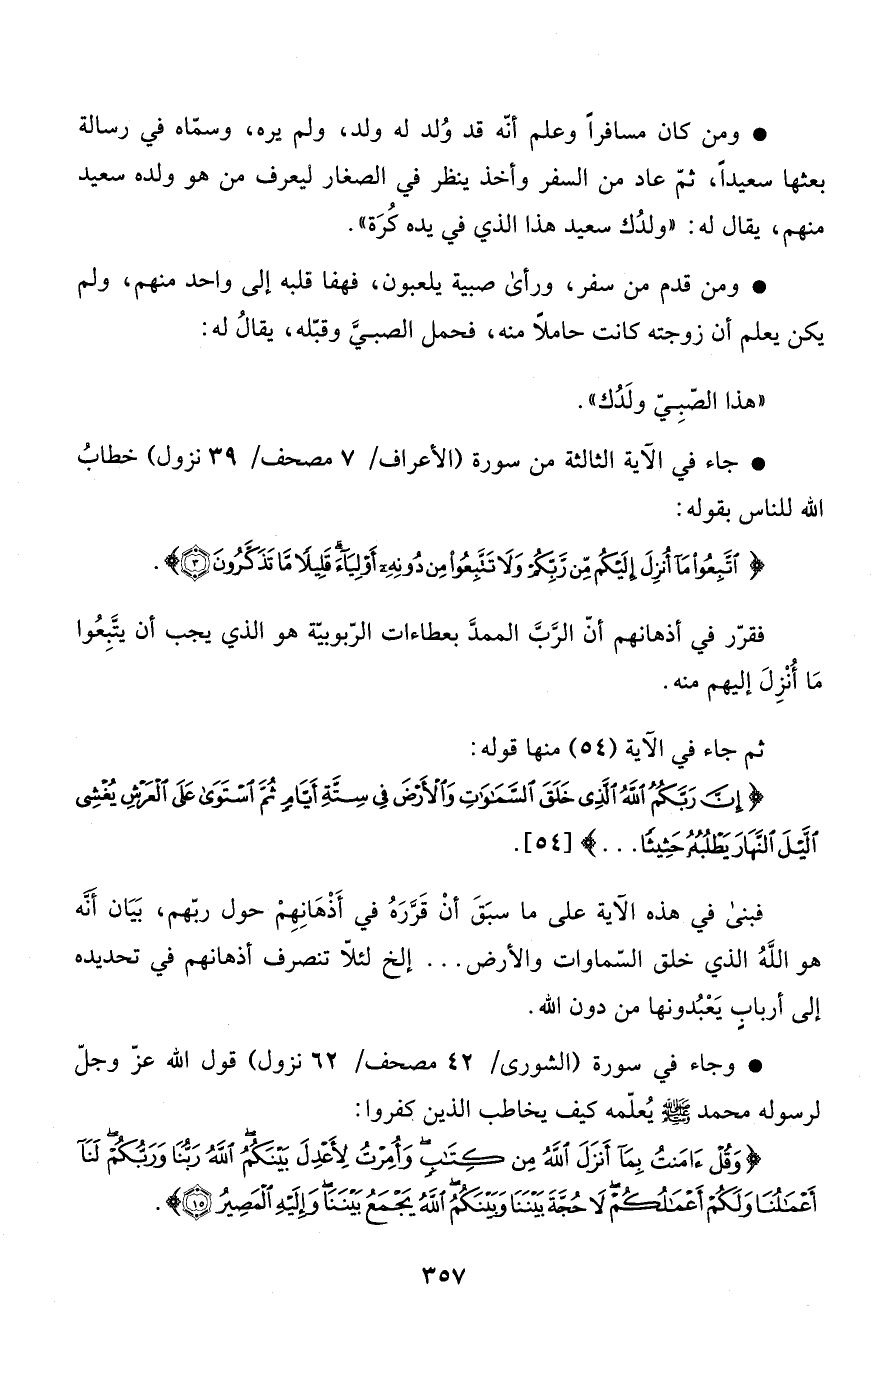 ● ومن كان مسافراً وعلم أنّه قد وُلد له ولد، ولم يره، وسمّاه في رسالة
بعثها سعيداً، ثمّ عاد من السفر وأخذ ينظر في الصغار ليعرف من هو ولده سعيد
منهم، يقال له: «ولدُك سعيد هذا الذي في يده كُرَة».
● ومن قدم من سفر، ورأىٰ صبية يلعبون، فهفا قلبه إلى واحد منهم، ولم
يكن يعلم أن زوجته كانت حاملاً منه، فحمل الصبيَّ وقبّله، يقالُ له:
«هذا الصّبِيّ ولَدُك».
● جاء في الآية الثالثة من سورة (الأعراف/ ٧ مصحف/ ٣٩ نزول) خطابُ
الله للناس بقوله:
﴿ ٱتَّبِعُوا۟ مَآ أُنزِلَ إِلَيْكُم مِّن رَّبِّكُمْ وَلَا تَتَّبِعُوا۟ مِن دُونِهِۦٓ أَوْلِيَآءَ ۗ قَلِيلًا مَّا تَذَكَّرُونَ ٣ ﴾.
فقرّر في أذهانهم أنّ الرَّبَّ الممدَّ بعطاءات الرّبوبيّة هو الذي يجب أن يتَّبِعُوا
مَا أُنْزِلَ إليهم منه.
ثم جاء في الآية (٥٤) منها قوله:
﴿ إِنَّ رَبَّكُمُ ٱللَّهُ ٱلَّذِى خَلَقَ ٱلسَّمَٰوَٰتِ وَٱلْأَرْضَ فِى سِتَّةِ أَيَّامٍ ثُمَّ ٱسْتَوَىٰ عَلَى ٱلْعَرْشِ يُغْشِى
ٱلَّيْلَ ٱلنَّهَارَ يَطْلُبُهُۥ حَثِيثًا... ﴾ [٥٤].
فبنىٰ في هذه الآية على ما سبَقَ أنْ قَرَّرَهُ في أَذْهَانِهِمْ حول ربّهم، بَيَان أنَّه
هو اللَّهُ الذي خلق السّماوات والأرض... إلخ لئلاّ تنصرف أذهانهم في تحديده
إلى أربابٍ يَعْبُدونها من دون الله.
● وجاء في سورة (الشورى/ ٤٢ مصحف/ ٦٢ نزول) قول الله عزّ وجلّ
لرسوله محمد ﷺ يُعلّمه كيف يخاطب الذين كفروا:
﴿ وَقُلْ ءَامَنتُ بِمَآ أَنزَلَ ٱللَّهُ مِن كِتَٰبٍ ۖ وَأُمِرْتُ لِأَعْدِلَ بَيْنَكُمُ ۖ ٱللَّهُ رَبُّنَا وَرَبُّكُمْ ۖ لَنَآ
أَعْمَٰلُنَا وَلَكُمْ أَعْمَٰلُكُمْ ۖ لَا حُجَّةَ بَيْنَنَا وَبَيْنَكُمُ ۖ ٱللَّهُ يَجْمَعُ بَيْنَنَا ۖ وَإِلَيْهِ ٱلْمَصِيرُ ١٥ ﴾.
٣٥٧